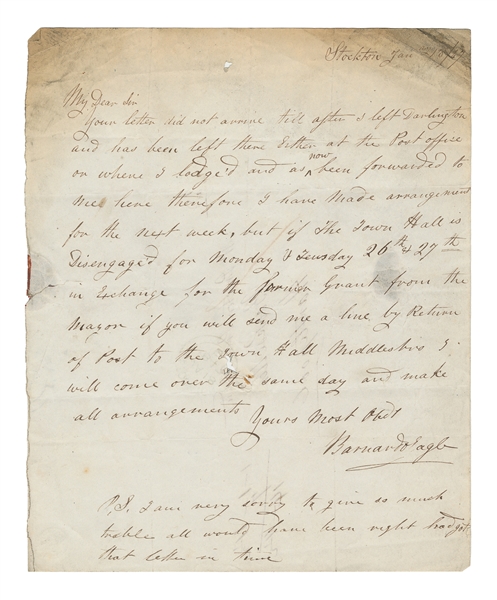 Stockton Jan
My Dear Sir
Your letter did not arrive till after I left Darlington
and has been left there Either at the Post office
or where I lodge'd and as now been forwarded to
me here therefore I have Made arrangement
for the next week, but if The Town Hall is
Disengage'd for Monday & Teusday 26th & 27th
in Exchange for the former Grant from the
Mayor if you will send me a line by Return
of Post to the Town Hall Middlesbro I
will come over the same day and make
all arrangements
Yours Most Obdt
Barnardo Eagle
P.S. I am very sorry to give so much
troble all would have been right had I got
that letter in time